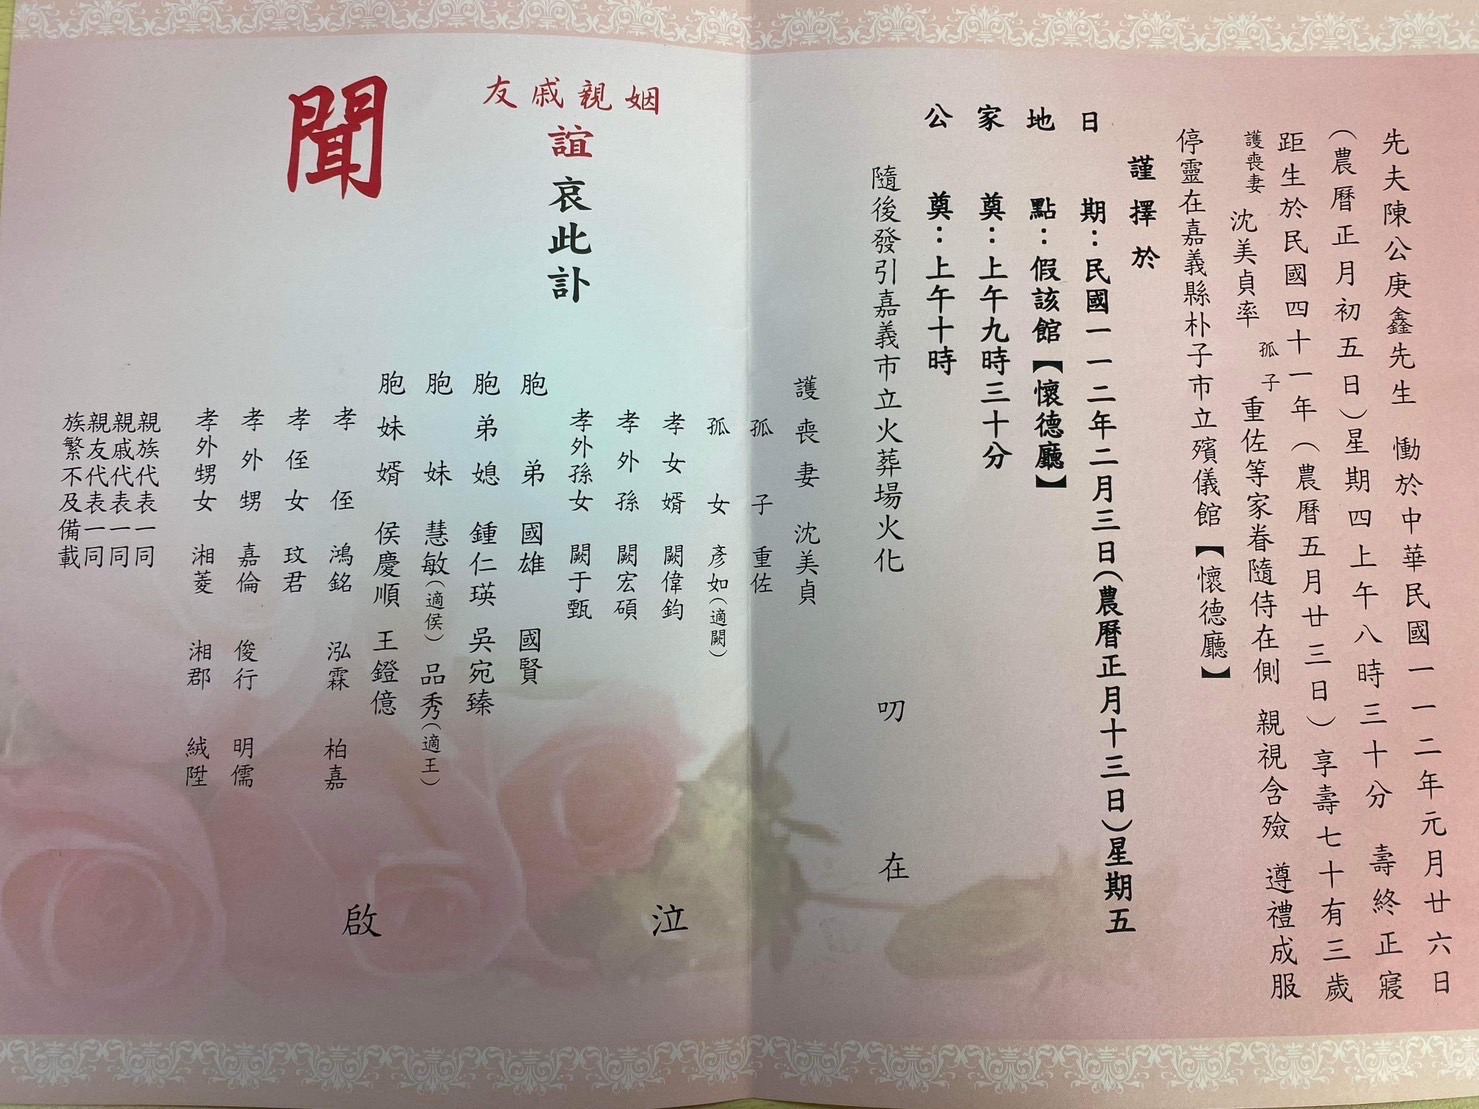 先夫陳公庚鑫先生 慟於中華民國一一二年元月廿六日
（農曆正月初五日）星期四上午八時三十分 壽終正寢
距生於民國四十一年（農曆五月廿三日）享壽七十有三歲
護喪妻 沈美貞率 孤子 重佐等家眷隨侍在側 親視含殮 遵禮成服
停靈在嘉義縣朴子市立殯儀館【懷德廳】
謹擇於
日期：民國一一二年二月三日(農曆正月十三日)星期五
地點：假該館【懷德廳】
家奠：上午九時三十分
公奠：上午十時
隨後發引嘉義市立火葬場火化
叨在
姻親戚友
誼哀此訃
聞
護喪妻 沈美貞
孤子 重佐
孤女 彥如(適闕)
孝女婿 闕偉鈞
孝外孫 闕宏碩
孝外孫女 闕于甄
胞弟 國雄 國賢
胞弟媳 鍾仁瑛 吳宛臻
胞妹 慧敏(適侯) 品秀(適王)
胞妹婿 侯慶順 王鐙億
孝侄 鴻銘 泓霖 柏嘉
孝侄女 玟君
孝外甥 嘉倫 俊行 明儒
孝外甥女 湘菱 湘郡 絨陞
親族代表一同
親戚代表一同
親友代表一同
族繁不及備載
泣啟